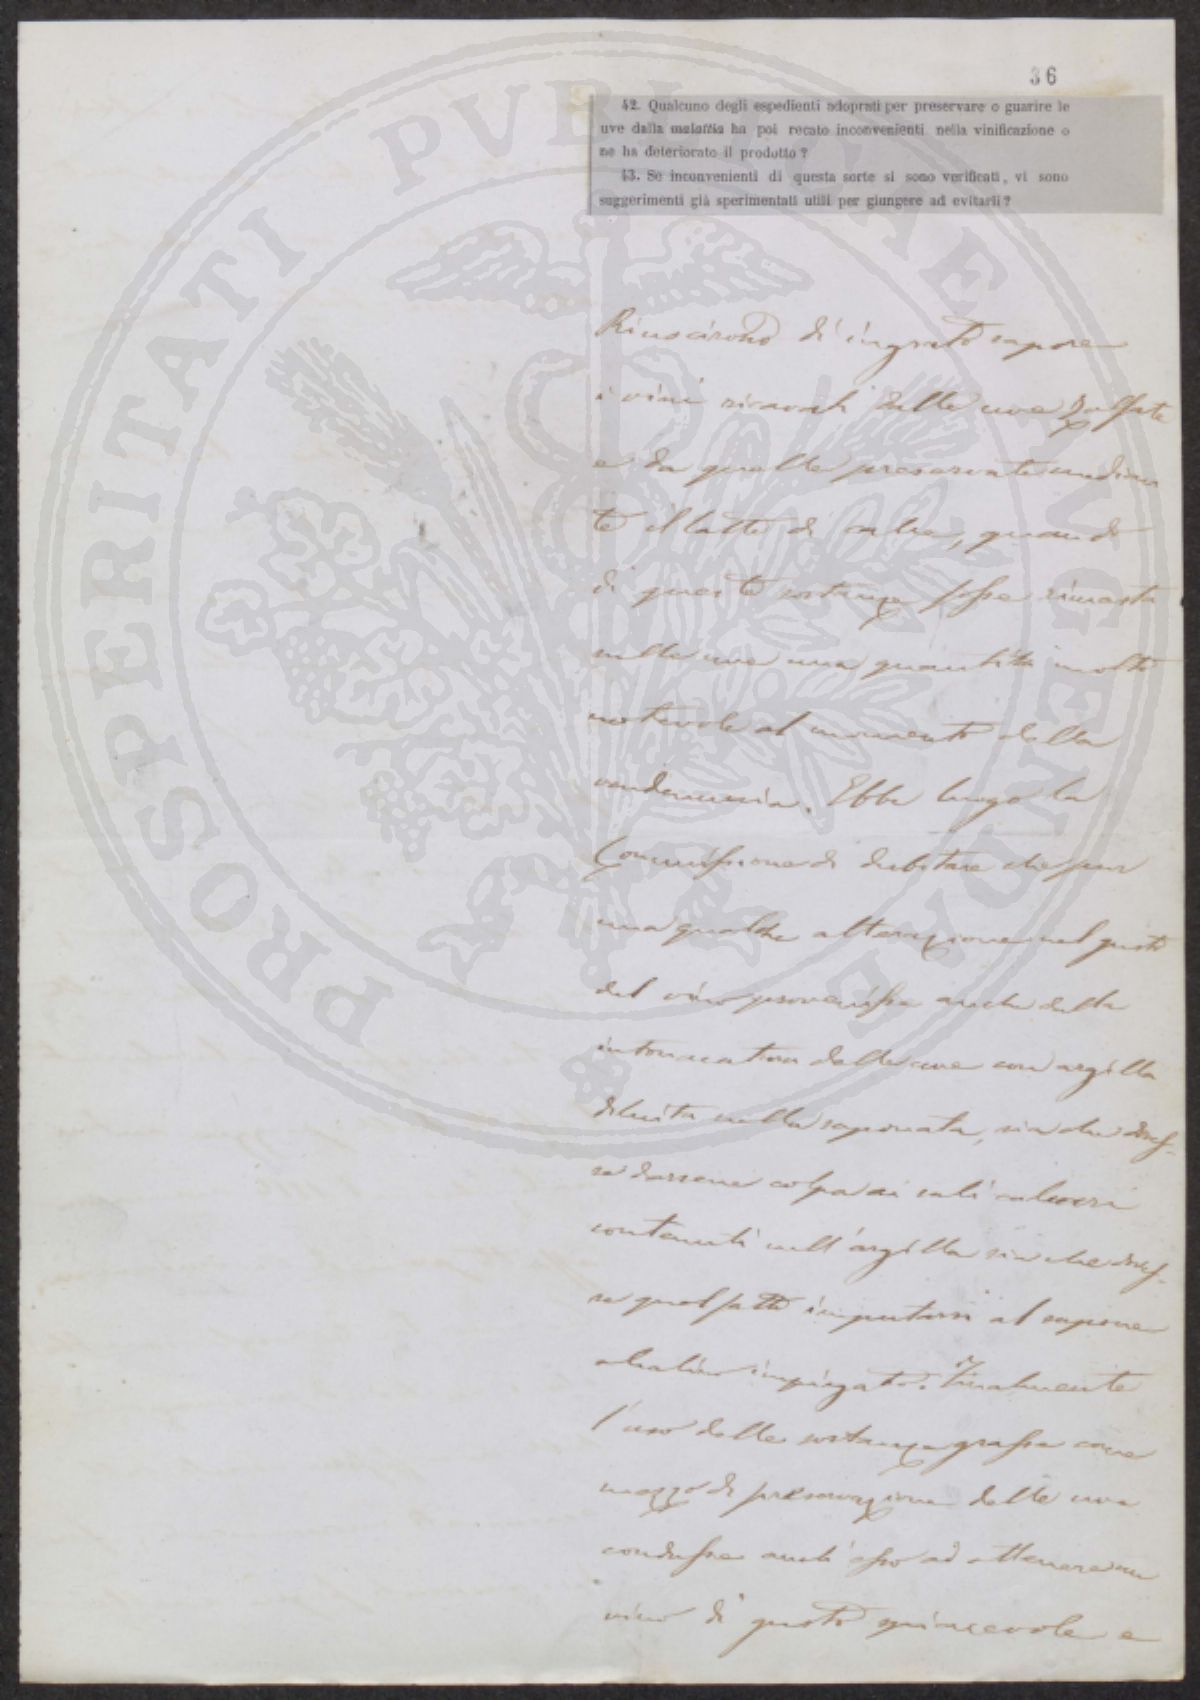 36
42. Qualcuno degli espedienti adoprati per preservare o guarire le
uve dalla malattia ha poi recato inconvenienti nella vinificazione o
ne ha deteriorato il prodotto?
43. Se inconvenienti di questa sorte si sono verificati, vi sono
suggerimenti già sperimentati utili per giungere ad evitarli?
PROSPERITATI PUBLICAE AUGENDAE
Riuscirono di ingrato sapore
i vini ricavati dalle uve zolfate
e da quelle preservate median
te il latte di calce, quando
di queste sostanze fosse rimasta
sulle uve una quantità molto
notevole al momento della
vendemmia. Ebbe luogo la
Commissione di dubitare che pur
una qualche alterazione nel gusto
del vino provenisse anche dalla
intonacatura delle uve con argilla
diluita nella saponata, sia che doves-
se darsene colpa ai sali calcari
contenuti nell'argilla sia che doves-
se quel fatto imputarsi al sapone
alcalino impiegato. Finalmente
l'uso delle sostanze grasse come
mezzo di preservazione delle uve
condusse anch'esso ad ottenere un
vino di gusto spiacevole e